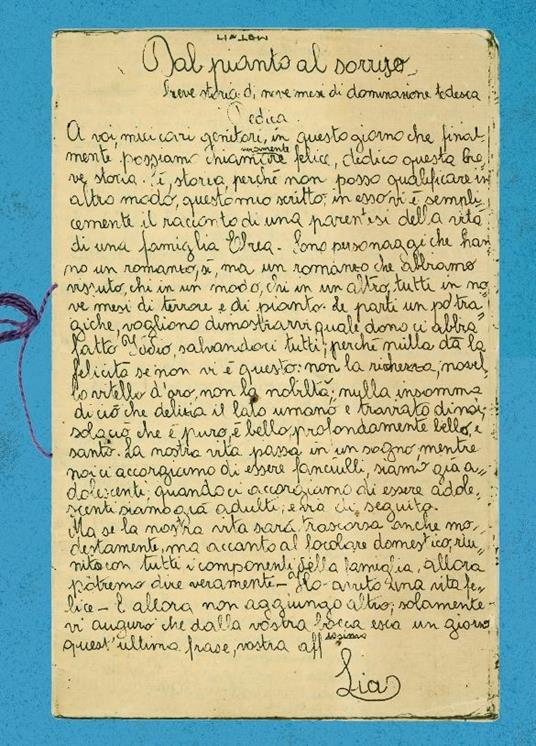 Dal pianto al sorriso
breve storia di nove mesi di dominazione tedesca
Dedica
A voi, miei cari genitori, in questo giorno che final-
mente possiamo chiamare veramente felice, dedico questa bre-
ve storia. Sì, storia, perché non posso qualificare in
altro modo, questo mio scritto; in esso vi è sempli-
cemente il racconto di una parentesi della vita
di una famiglia Ebrea. Sono personaggi che han-
no un romanzo, sì, ma un romanzo che abbiamo
vissuto, chi in un modo, chi in un altro, tutti in no-
ve mesi di terrore e di pianto. Le parti un po' tra-
giche, vogliono dimostrarvi quale dono ci abbia
fatto Iddio, salvandoci tutti; perché nulla dà la
felicità se non vi è questo: non la richezza, novel-
lo vitello d'oro, non la nobiltà; nulla insomma
di ciò che delizia il lato umano e
solo ciò che è puro, è bello, profondamente bello, e
santo. La nostra vita passa in un sogno, mentre
noi ci accorgiamo di essere fanciulli, siamo già a-
dolescenti; quando ci accorgiamo di essere adole-
scenti siamo già adulti; e via di seguito.
Ma se la nostra vita sarà trascorsa anche mo-
destamente, ma accanto al focolare domestico, riu-
nito con tutti i componenti della famiglia, allora
potremo dire veramente - Ho avuto una vita fe-
lice - E allora non aggiungo altro; solamente
vi auguro che dalla vostra bocca esca un giorno
quest'ultima frase, vostra aff issima
Lia